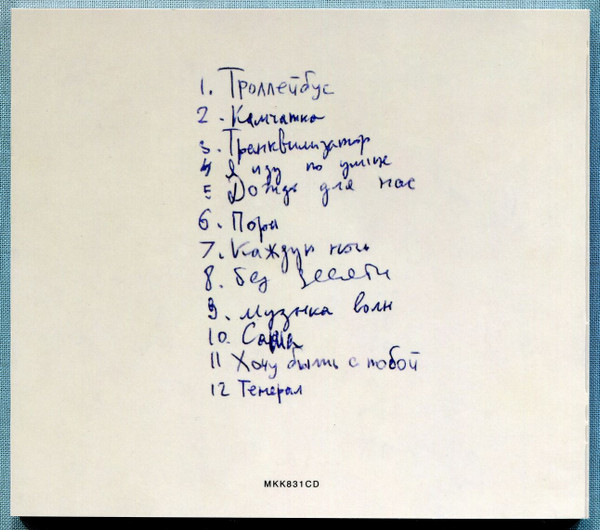 1. Троллейбус
2. Камчатка
3. Транквилизатор
4 Я иду по улице
5 Дождь для нас
6. Пора
7. Каждую ночь
8. Без десяти
9. Музыка волн
10. Саша
11 Хочу быть с тобой
12 Генерал
MKK831CD